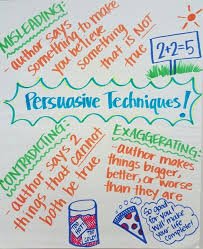 MISLEADING:
author says
something to make
you believe
something
that is NOT
true
2+2=5
Persuasive Techniques!
CONTRADICTING:
author says 2
things that cannot
both be true
EXAGGERATING:
-author makes
things bigger,
better, or worse
than they are
So good
for you and
will make
your life
complete!